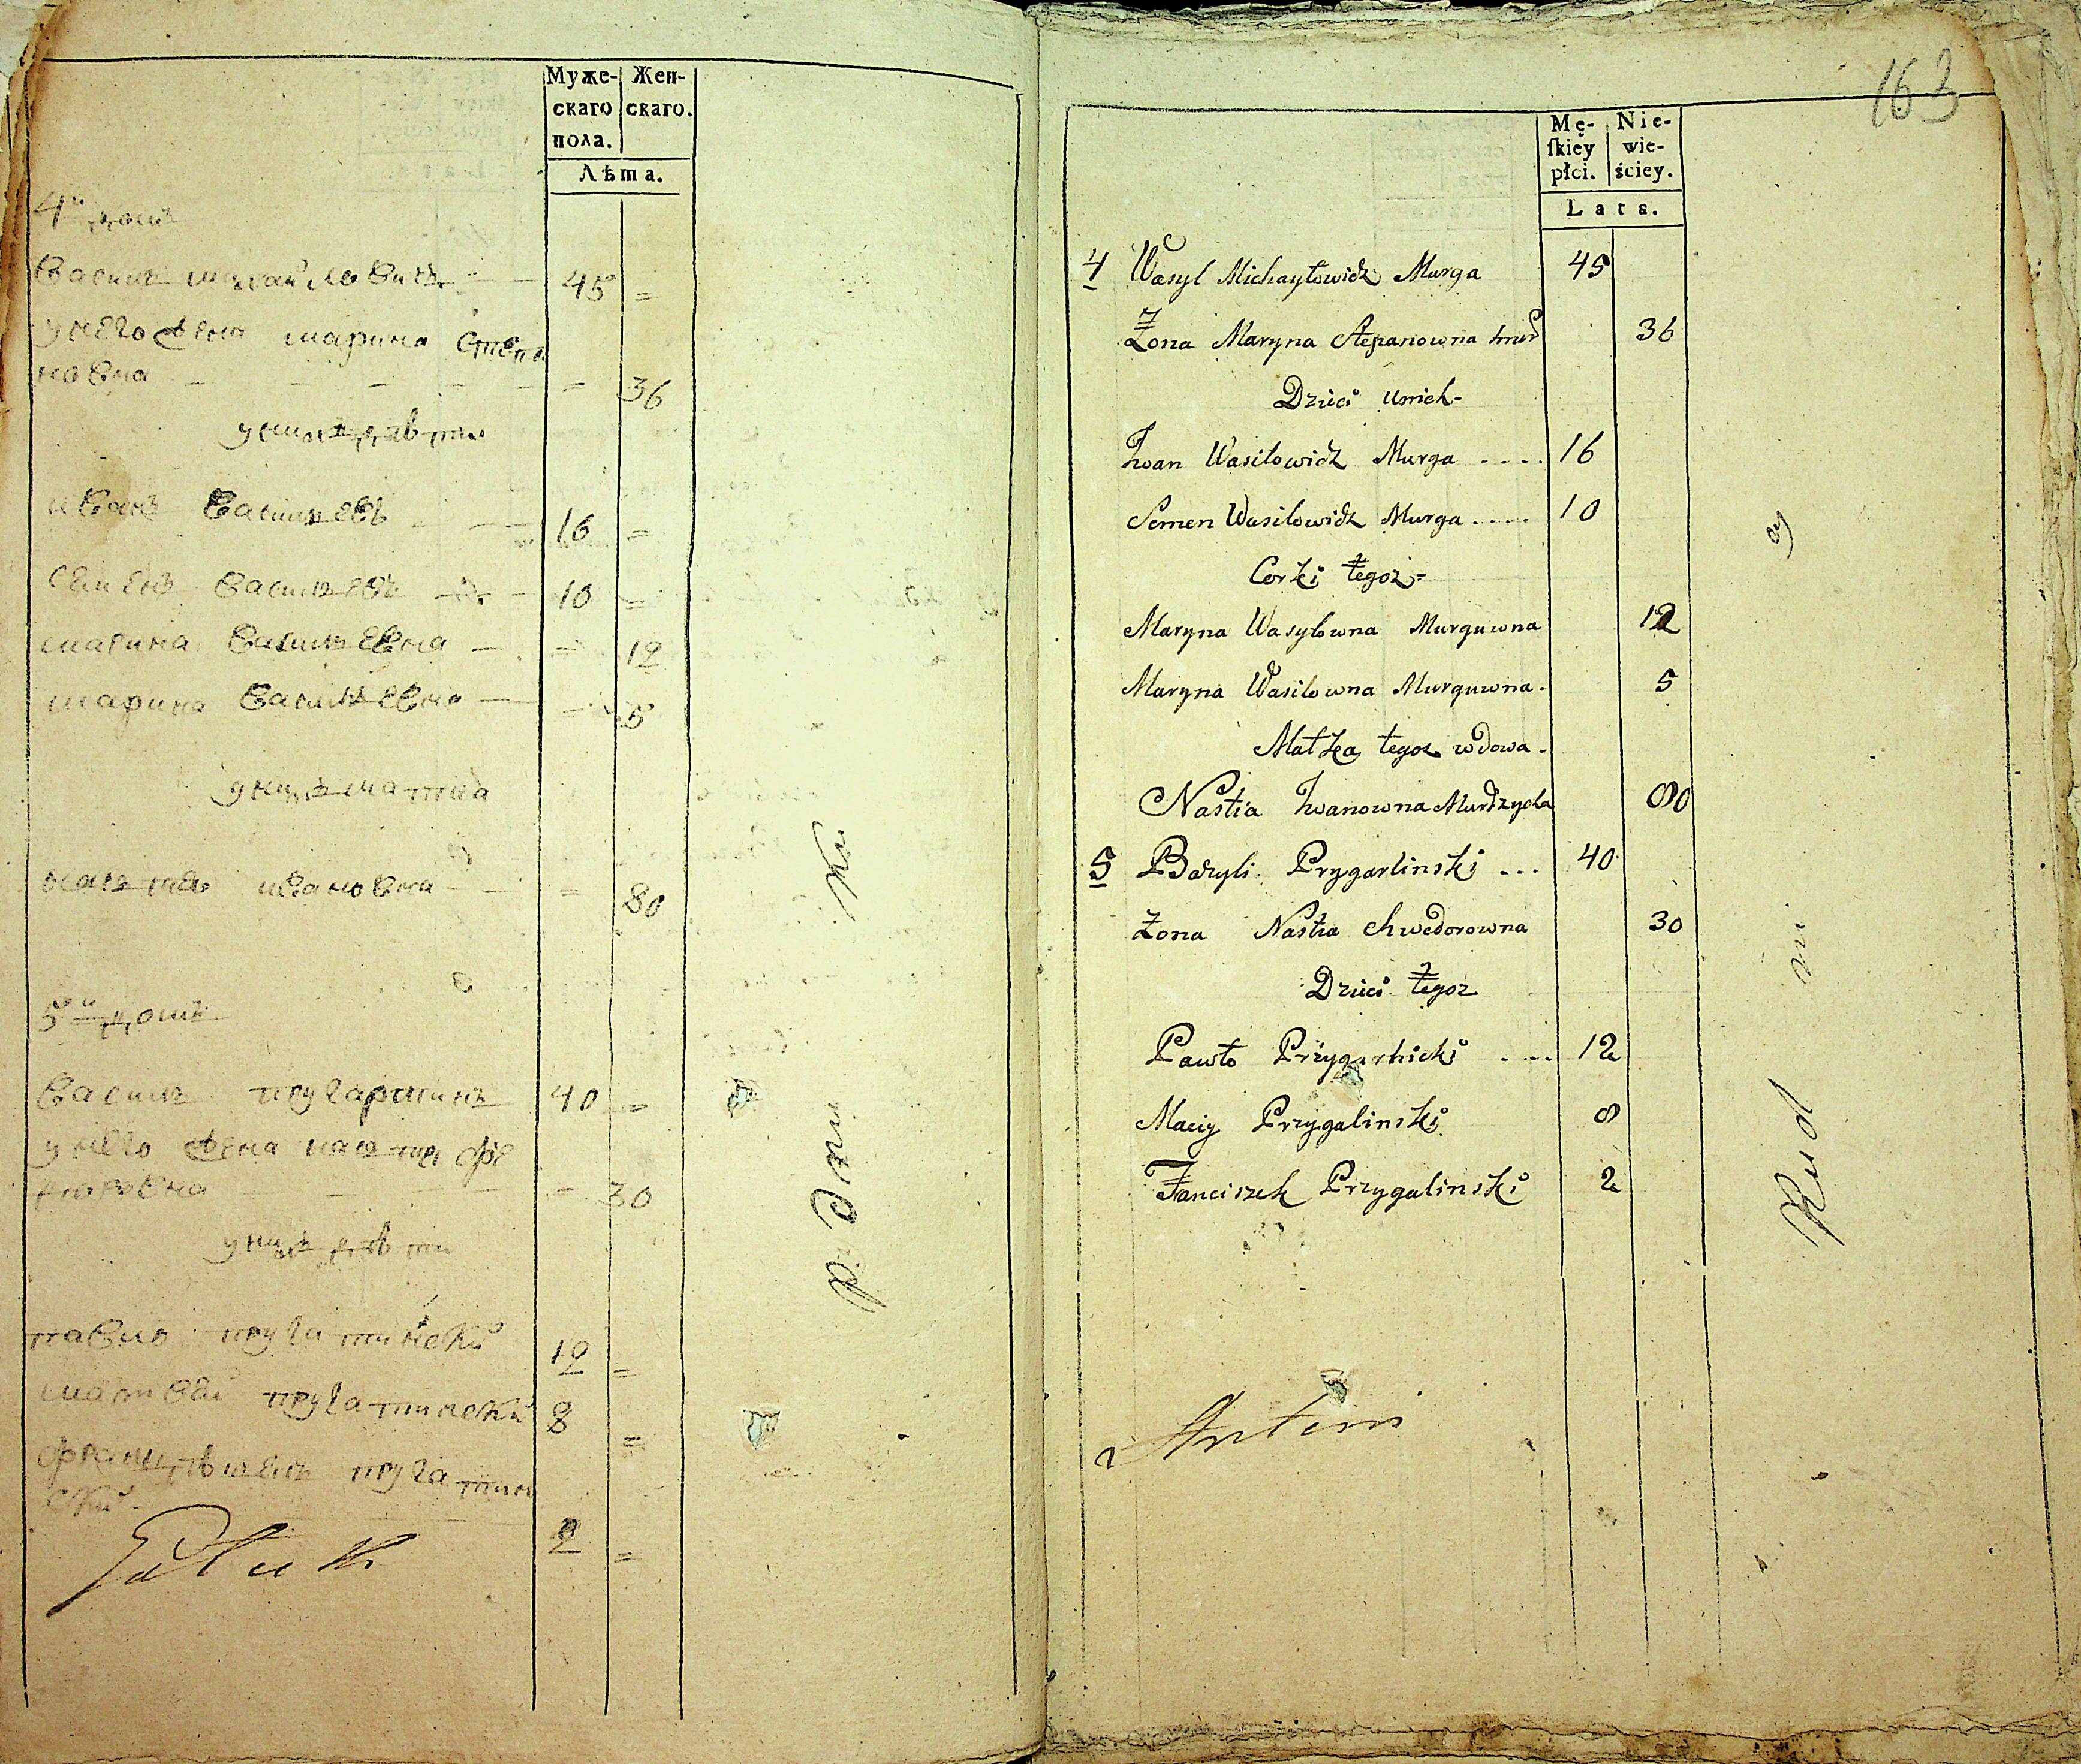 Муже-
скаго
пола.
Жен-
скаго.
Лѣта.
4й домъ
Василь Михайловичъ 45 =
у него жена марина Степа
новна 36
у нихъ дѣти
иванъ Васильевъ 16 =
семенъ Васильевъ 10 =
марина Васильевна 12
марина Васильевна 5
у нихъ матка
настя ивановна 80
5й домъ
Василь 40 =
у него жена настя фе
доровна 30
у нихъ дѣти
павло 12 =
матвѣй 8 =
2 =
163
Mę-
skiey
płci.
Nie-
wie-
ściey.
Lata.
4 Wasyl Michayłowicz Murga 45
Zona Maryna Stepanowna 36
Dzieci unich
Iwan Wasilowicz Murga .... 16
Semen Wasilowicz Murga .... 10
Corki tegoz
Maryna Wasyłowna Murguwna 12
Maryna Wasilowna Murguwna 5
Matka tegoz wdowa
Nastia Iwanowna Murdzycha 80
5 Bazyli Prygarlinski ... 40
Zona Nastia Chwedorowna 30
Dzieci tegoz
Pawło .... 12
Maciy Przygalinski 8
Franciszek Przygalinski 2
Antoni
Rud